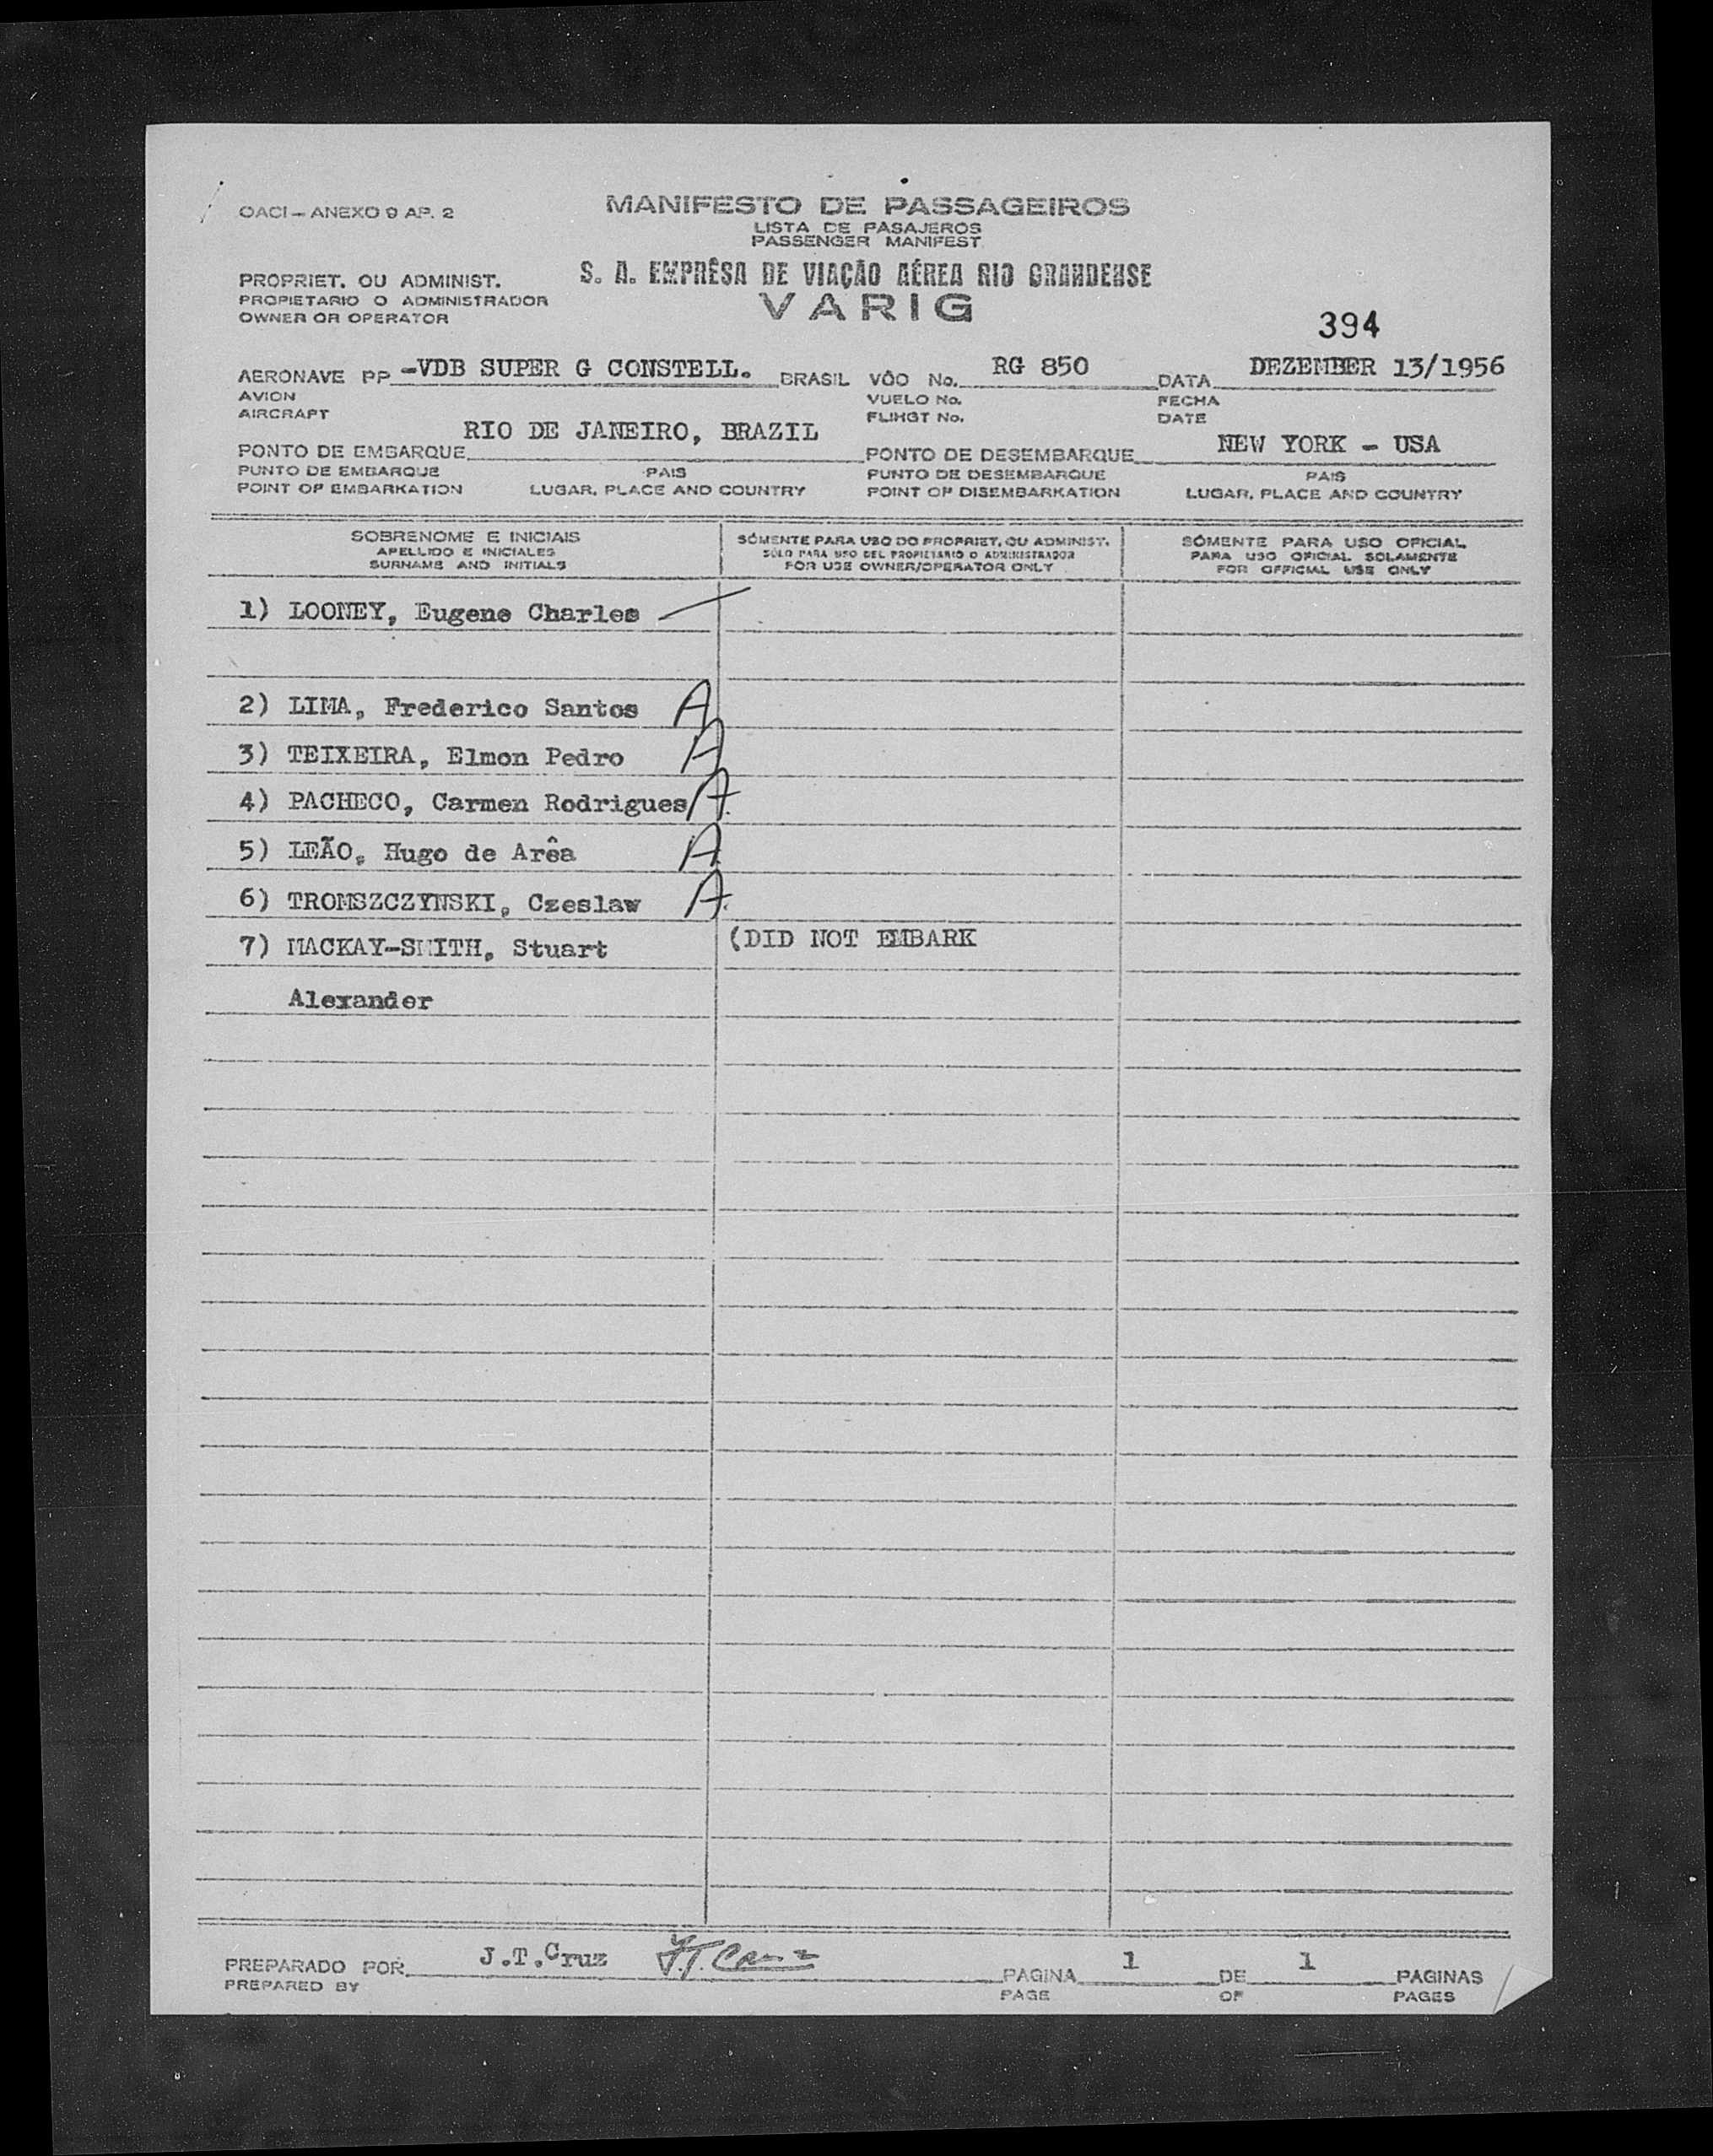 OACI — ANEXO 9 AP. 2
MANIFESTO DE PASSAGEIROS
LISTA DE PASAJEROS
PASSENGER MANIFEST
PROPRIET. OU ADMINIST.
PROPIETARIO O ADMINISTRADOR
OWNER OR OPERATOR
S. A. EMPRÊSA DE VIAÇÃO AÉREA RIO GRANDENSE
VARIG
394
AERONAVE PP -VDB SUPER G CONSTELL. BRASIL VÔO No. RG 850 DATA DEZEMBER 13/1956
AVION VUELO No. FECHA
AIRCRAFT FLIHGT No. DATE
PONTO DE EMBARQUE RIO DE JANEIRO, BRAZIL PONTO DE DESEMBARQUE NEW YORK - USA
PUNTO DE EMBARQUE PAIS PUNTO DE DESEMBARQUE PAIS
POINT OF EMBARKATION LUGAR, PLACE AND COUNTRY POINT OF DISEMBARKATION LUGAR, PLACE AND COUNTRY
SOBRENOME E INICIAIS
APELLIDO E INICIALES
SURNAME AND INITIALS
SÓMENTE PARA USO DO PROPRIET. OU ADMINIST.
SÓLO PARA USO DEL PROPIETARIO O ADMINISTRADOR
FOR USE OWNER/OPERATOR ONLY
SÓMENTE PARA USO OFICIAL
PARA USO OFICIAL SOLAMENTE
FOR OFFICIAL USE ONLY
1) LOONEY, Eugene Charles
2) LIMA, Frederico Santos A
3) TEIXEIRA, Elmon Pedro A
4) PACHECO, Carmen Rodrigues A.
5) LEÃO, Hugo de Arêa A
6) TROMSZCZYNSKI, Czeslaw A.
7) MACKAY-SMITH, Stuart (DID NOT EMBARK
Alexander
PREPARADO POR J.T.Cruz J.T. Cruz PAGINA 1 DE 1 PAGINAS
PREPARED BY PAGE OF PAGES